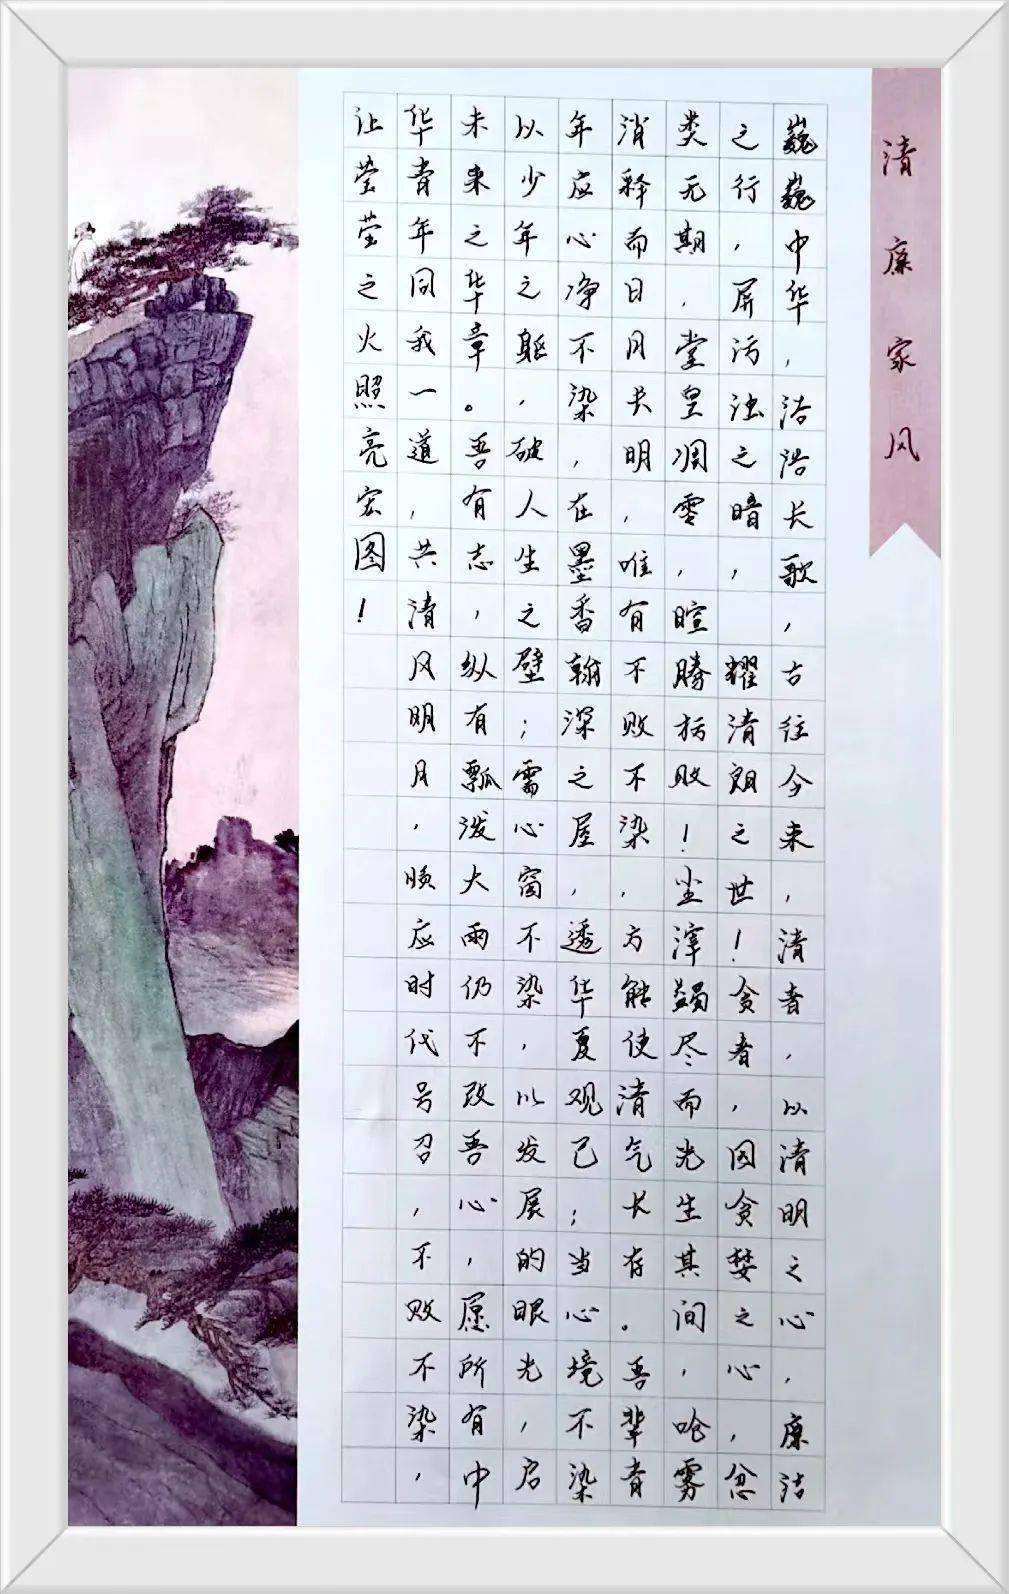 清廉家风
巍巍中华,浩浩长歌,古往今来,清者,以清明之心,廉洁
之行,屏污浊之暗,耀清朗之世!贪者,因贪婪之心,忿
类无期,堂皇凋零,暄腾败!尘滓蠲尽而光生其间,唅雾
消释而日月长明,唯有不败不染,方能使清气长存。吾辈青
年应心净不染,在墨香翰深之屋,透华夏观己;当心境不染
以少年之躯,破人生之壁;需心窗不染,以发展的眼光,启
未来之华章。吾有志,纵有瓢泼大雨仍不改吾心,愿所有中
华青年同我一道,共清风明月,顺应时代号召,不败不染,
让莹莹之火照亮宏图!